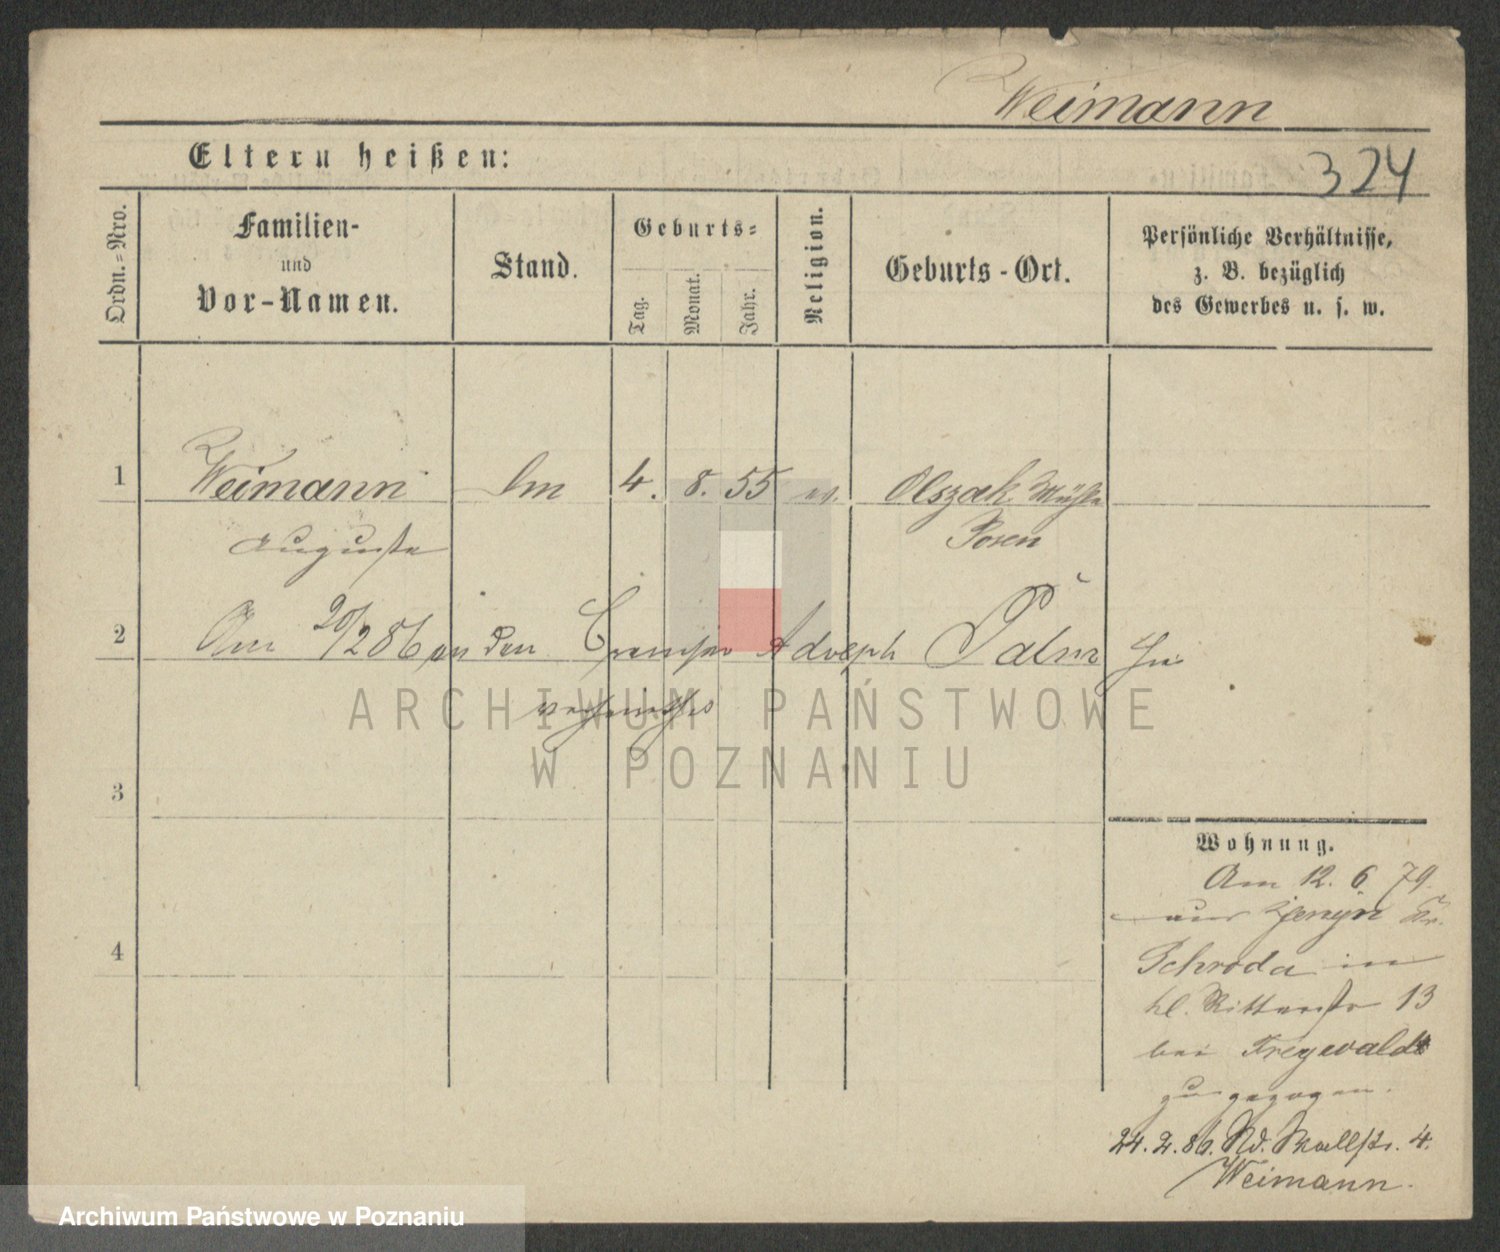 Weimann
Eltern heißen:
324
Ordn.=Nro.
Familien-
und
Vor-Namen.
Stand.
Geburts=
Tag.
Monat.
Jahr.
Religion.
Geburts-Ort.
Persönliche Verhältnisse,
z. B. bezüglich
des Gewerbes u. s. w.
1 Weimann 4. 8. 55 ev. Olszak Mühle
Auguste Posen
2 Am 20/2 86 an den Adolph Palm hier
ARCHIWUM PAŃSTWOWE
W POZNANIU
3
Wohnung.
Am 12. 6 79.
aus Kr.
4
Schroda in
kl. Ritterstr 13
bei Treywaldt
zugezogen.
24. 2. 86. Wallstr. 4.
Weimann.
Archiwum Państwowe w Poznaniu